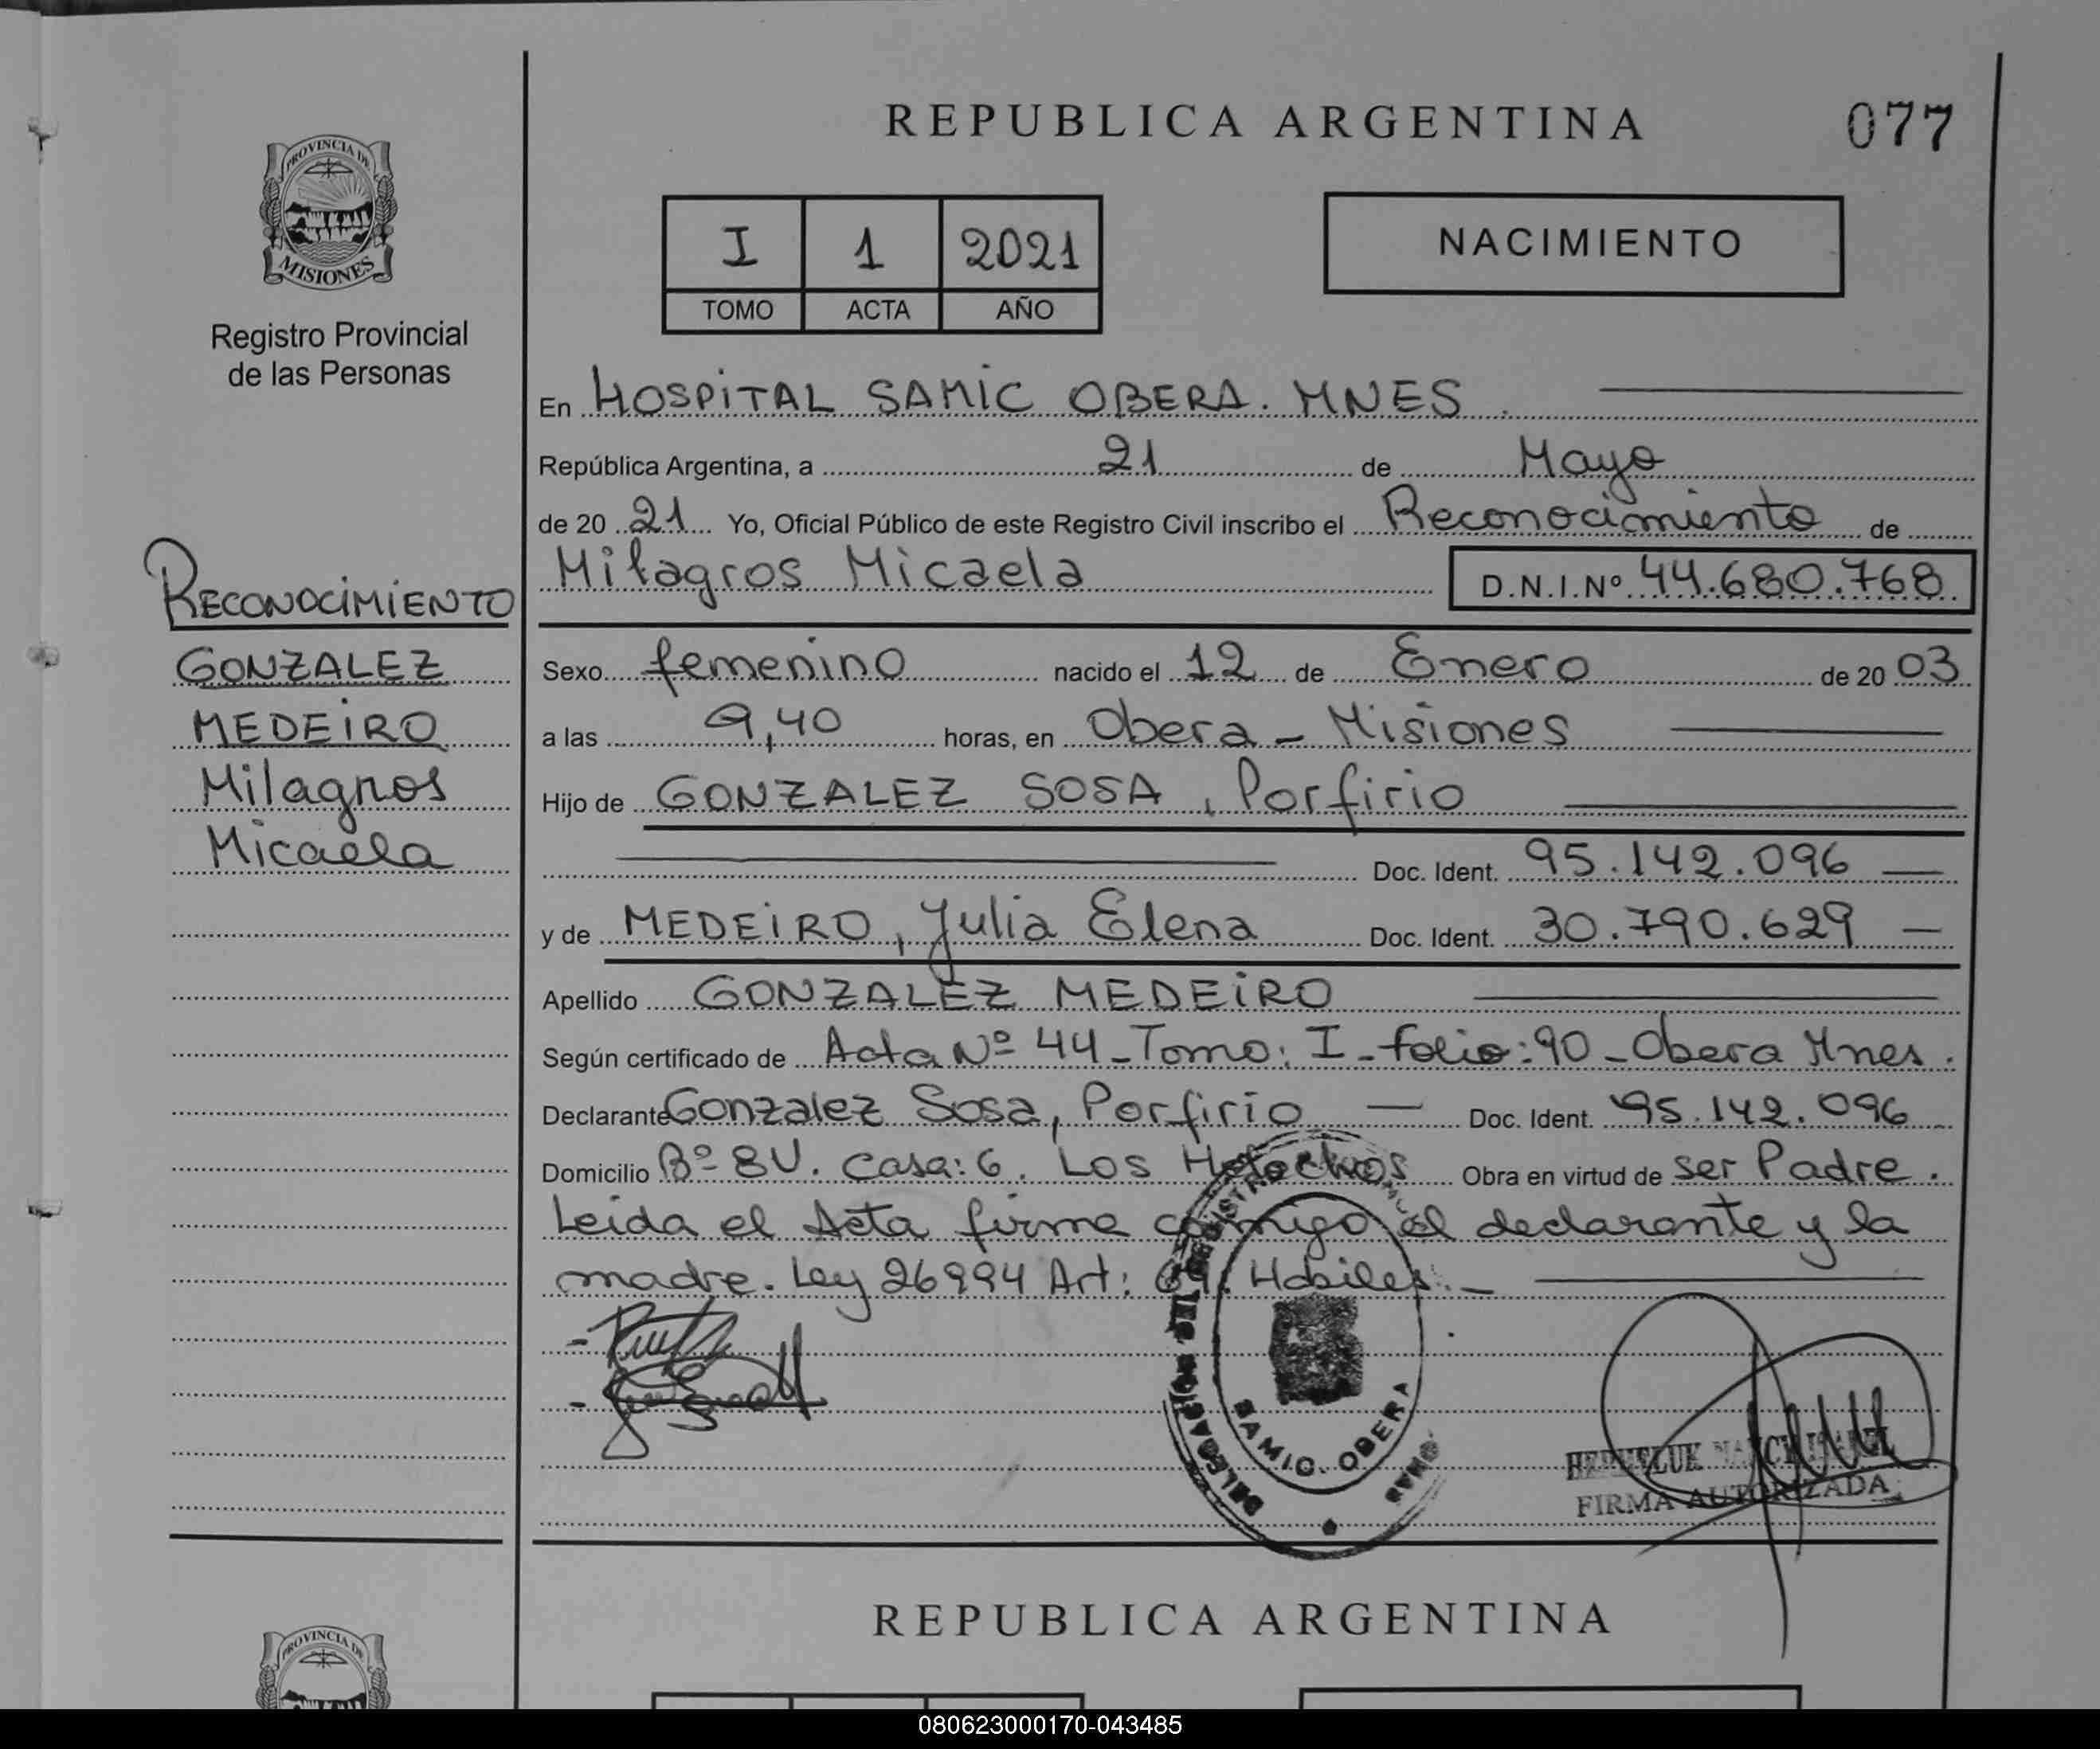 REPUBLICA ARGENTINA
077
PROVINCIA DE
MISIONES
Registro Provincial
de las Personas
I 1 2021
TOMO ACTA AÑO
NACIMIENTO
En HOSPITAL SAMIC OBERA. MNES
República Argentina, a 21 de Mayo
de 20 21 Yo, Oficial Público de este Registro Civil inscribo el Reconocimiento de
Milagros Micaela D.N.I.Nº 44.680.768
RECONOCIMIENTO
GONZALEZ
MEDEIRO
Milagros
Micaela
Sexo femenino nacido el 12 de Enero de 20 03
a las 9,40 horas, en Obera - Misiones
Hijo de GONZALEZ SOSA, Porfirio
Doc. Ident. 95.142.096
y de MEDEIRO, Julia Elena Doc. Ident. 30.790.629
Apellido GONZALEZ MEDEIRO
Según certificado de Acta Nº 44 - Tomo: I - folio: 90 - Obera Mnes.
Declarante Gonzalez Sosa, Porfirio Doc. Ident. 95.142.096
Domicilio Bº 8U. Casa: 6. Los Helechos Obra en virtud de ser Padre.
Leida el Acta firma conmigo el declarante y la
madre. Ley 26994 Art: Habiles.
SAMIC. OBERA
FIRMA AUTORIZADA
REPUBLICA ARGENTINA
PROVINCIA DE
080623000170-043485